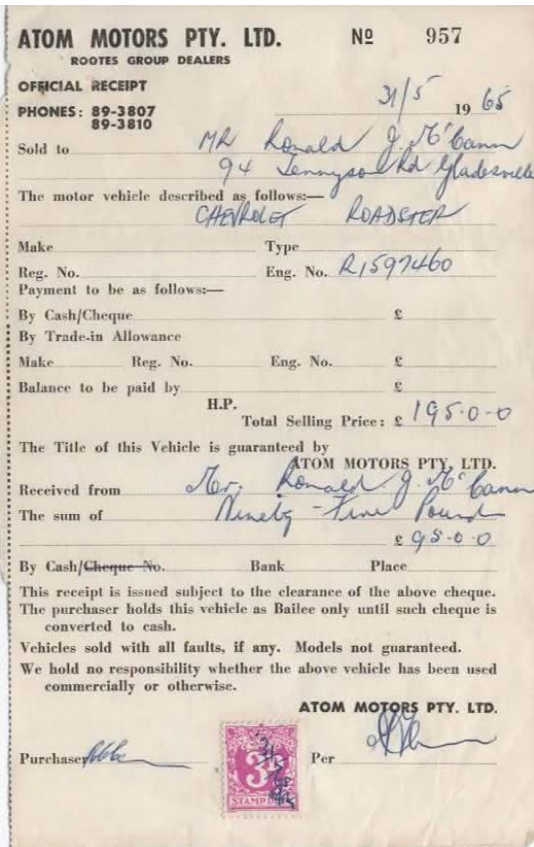 ATOM MOTORS PTY. LTD. Nº 957
ROOTES GROUP DEALERS
OFFICIAL RECEIPT
PHONES: 89-3807
89-3810
31/5 1965
Sold to MR Ronald J. McCann
94 Tennyson Rd Gladesville
The motor vehicle described as follows:—
CHEVROLET ROADSTER
Make Type
Reg. No. Eng. No. R1597460
Payment to be as follows:—
By Cash/Cheque £
By Trade-in Allowance
Make Reg. No. Eng. No. £
Balance to be paid by £
H.P.
Total Selling Price: £ 195-0-0
The Title of this Vehicle is guaranteed by
ATOM MOTORS PTY. LTD.
Received from Mr. Ronald J. McCann
The sum of Ninety-Five Pound
£ 95-0-0
By Cash/Cheque No. Bank Place
This receipt is issued subject to the clearance of the above cheque.
The purchaser holds this vehicle as Bailee only until such cheque is
converted to cash.
Vehicles sold with all faults, if any. Models not guaranteed.
We hold no responsibility whether the above vehicle has been used
commercially or otherwise.
ATOM MOTORS PTY. LTD.
Purchaser Per
3D
STAMP DUTY